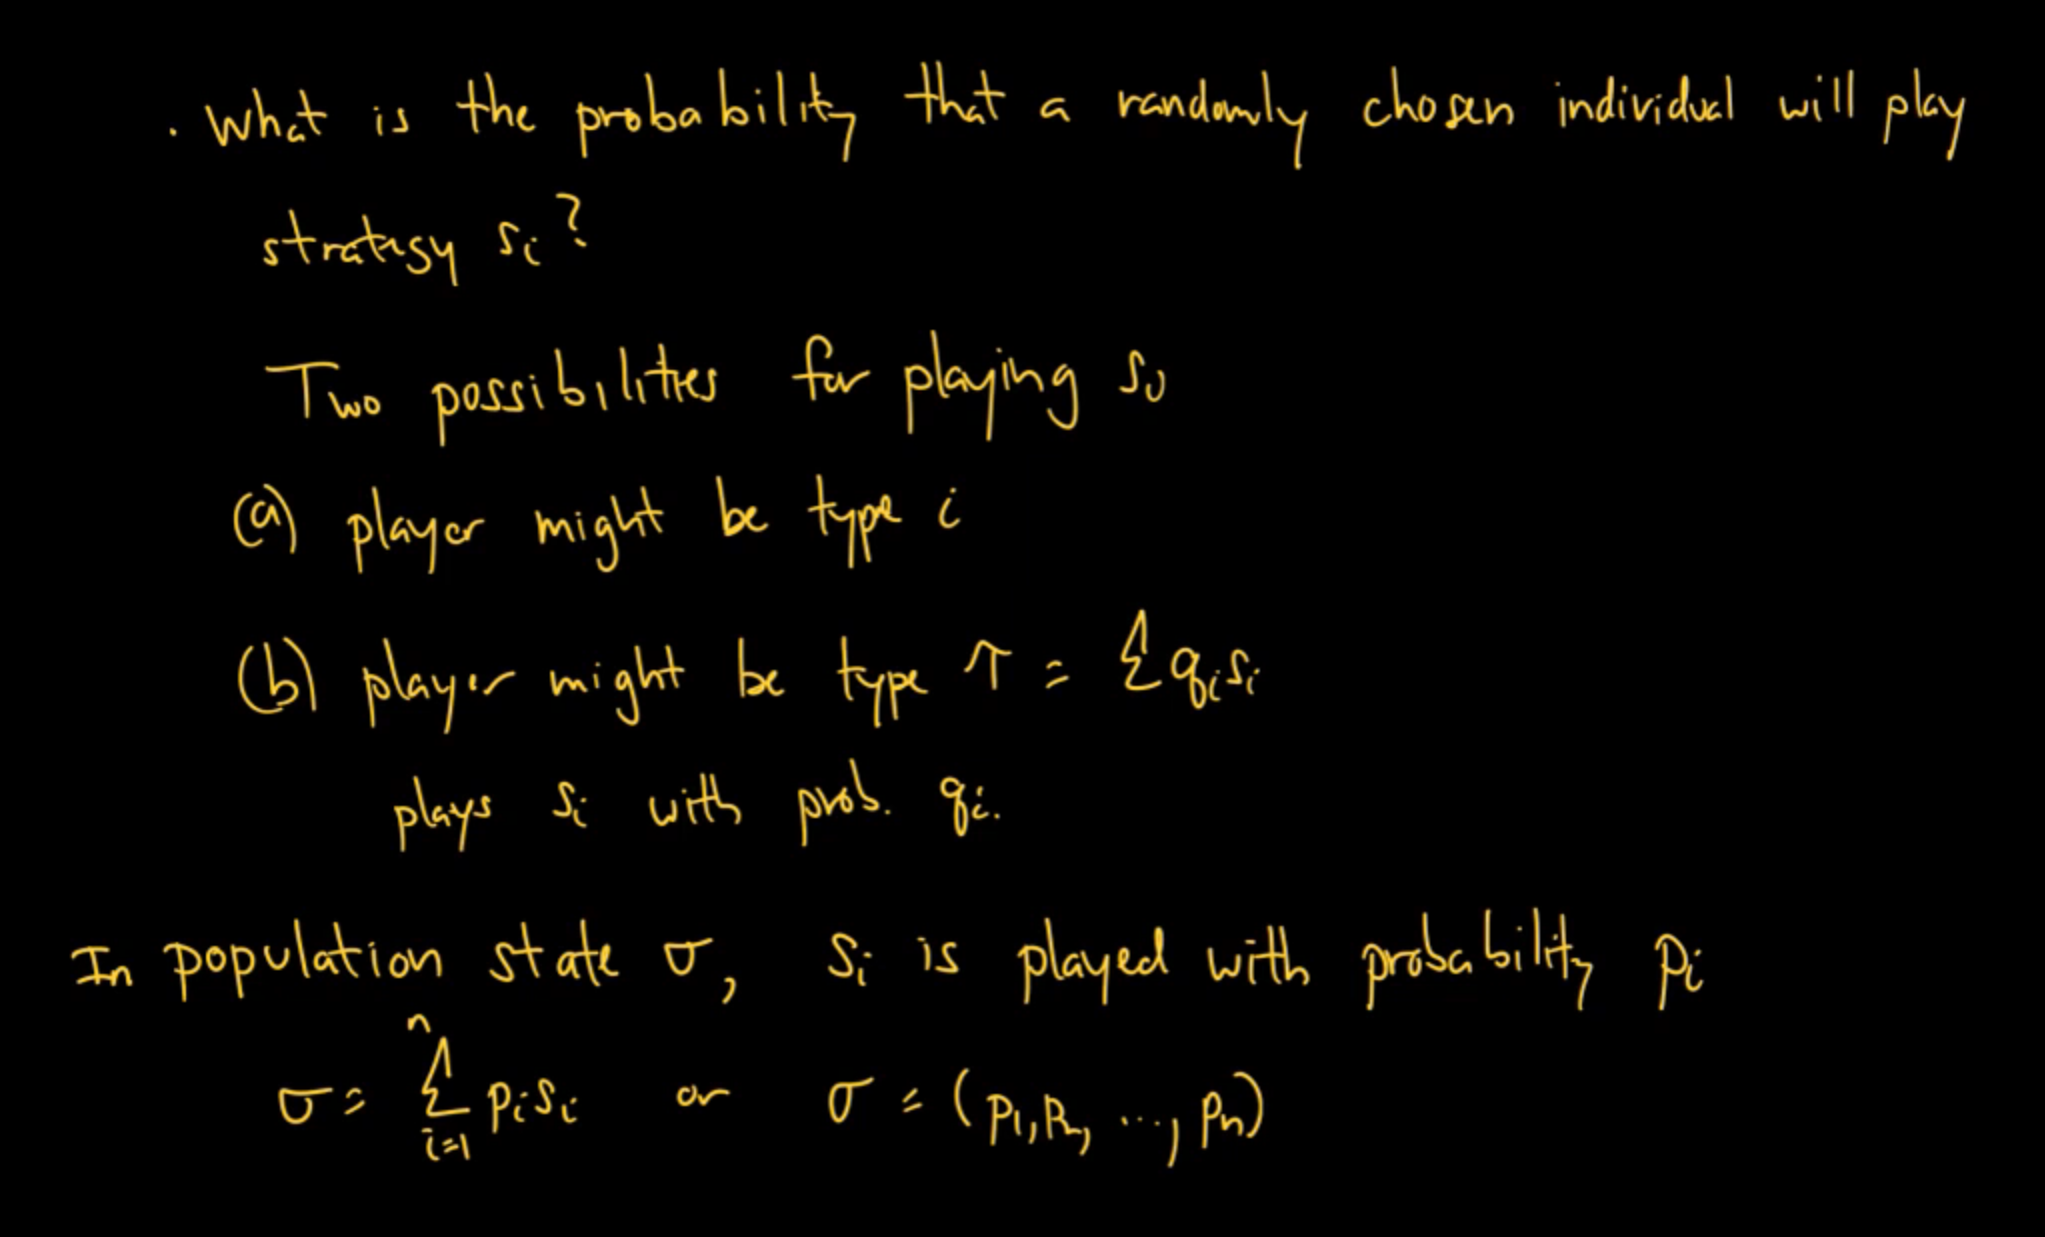 . What is the probability that a randomly chosen individual will play
strategy sᵢ?
Two possibilities for playing sᵢ
(a) player might be type i
(b) player might be type τ = Σ qᵢsᵢ
plays sᵢ with prob. qᵢ.
In population state σ, sᵢ is played with probability pᵢ
σ = Σⁿᵢ₌₁ pᵢsᵢ or σ = (p₁, p₂, ..., pₙ)